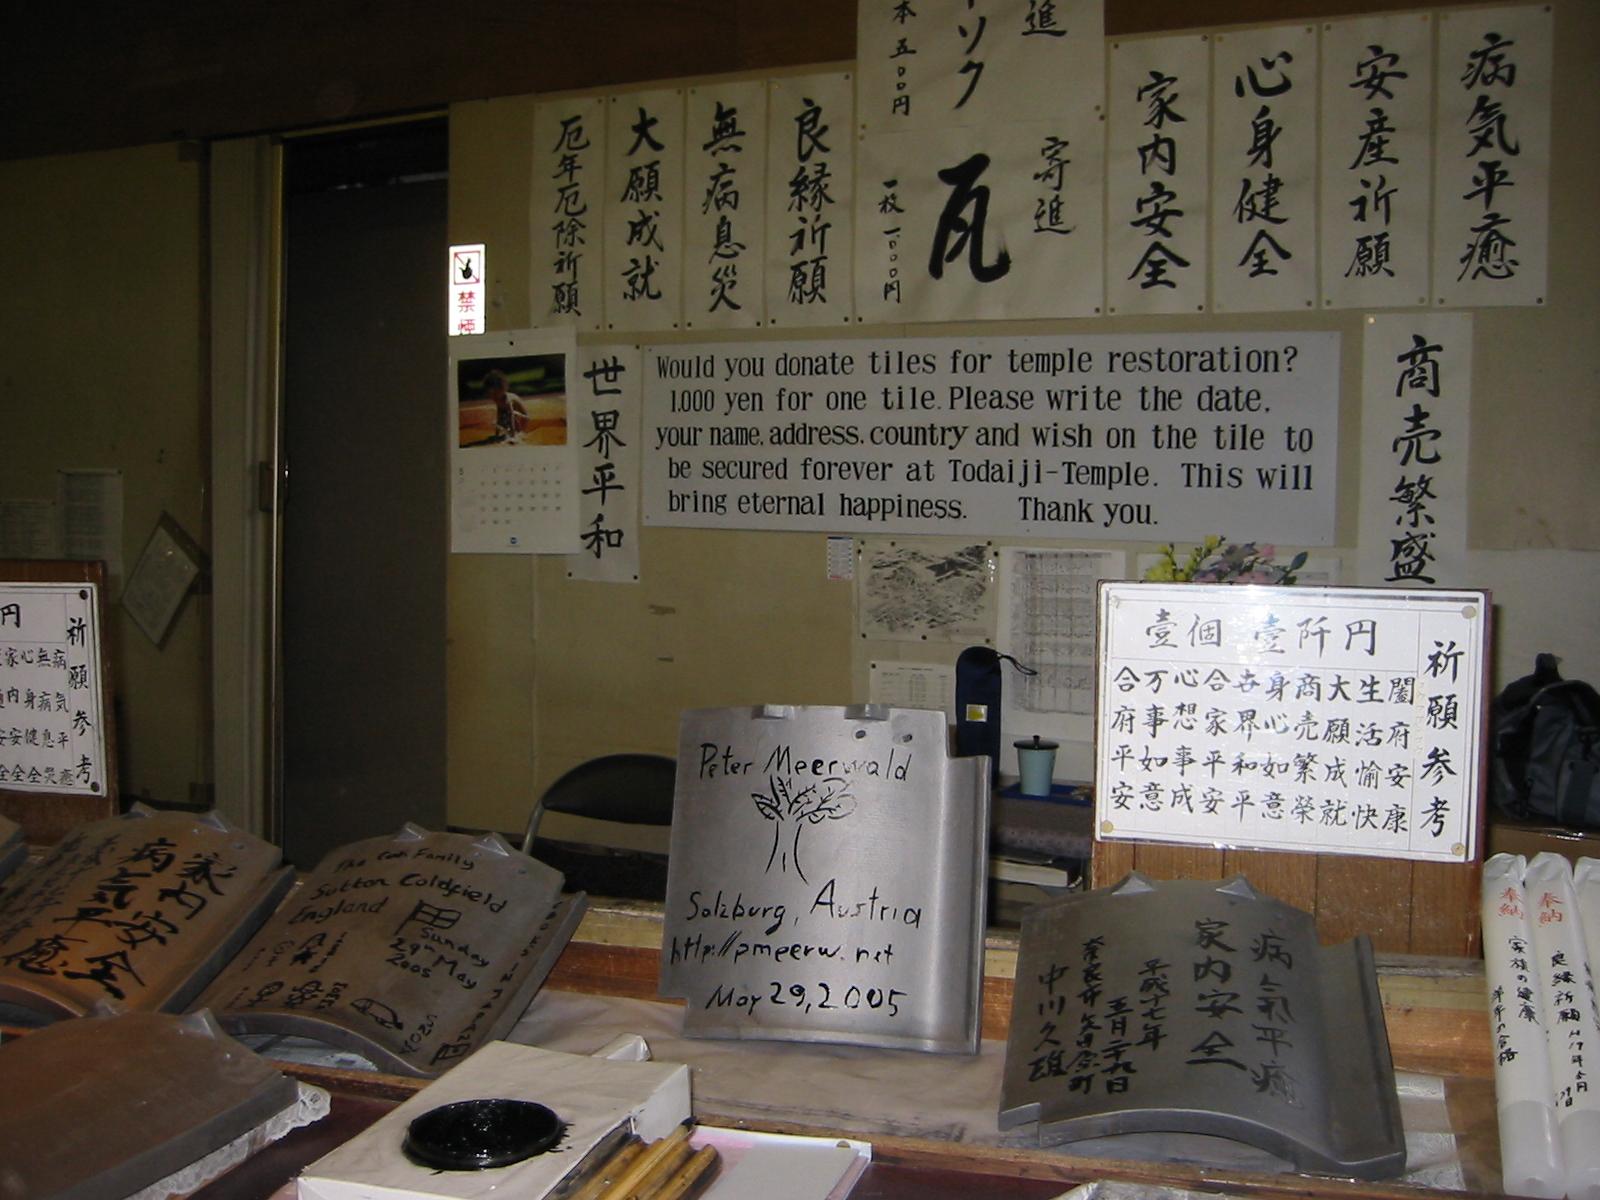 本 五〇〇円
ソク
進
病気平癒
安産祈願
心身健全
家内安全
寄進
瓦
一枚 一〇〇〇円
良縁祈願
無病息災
大願成就
厄年厄除祈願
禁煙
世界平和
Would you donate tiles for temple restoration?
1.000 yen for one tile. Please write the date,
your name, address, country and wish on the tile to
be secured forever at Todaiji-Temple. This will
bring eternal happiness. Thank you.
商売繁盛
円
祈願参考
病気平癒
無病息災
心身健全
家内安全
祈願参考
壹個 壹阡円
闔府安康
生活愉快
大願成就
商売繁榮
身心如意
世界和平
合家平安
心想事成
万事如意
合府平安
家内安全
病気平癒
The Cook Family
Sutton Coldfield
England
Sunday
29th May
2005
Peter Meerwald
Salzburg, Austria
http://pmeerw.net
May 29, 2005
病気平癒
家内安全
平成十七年
五月二十九日
奈良市
中川久雄
奉納
家族の健康
奉納
良縁祈願